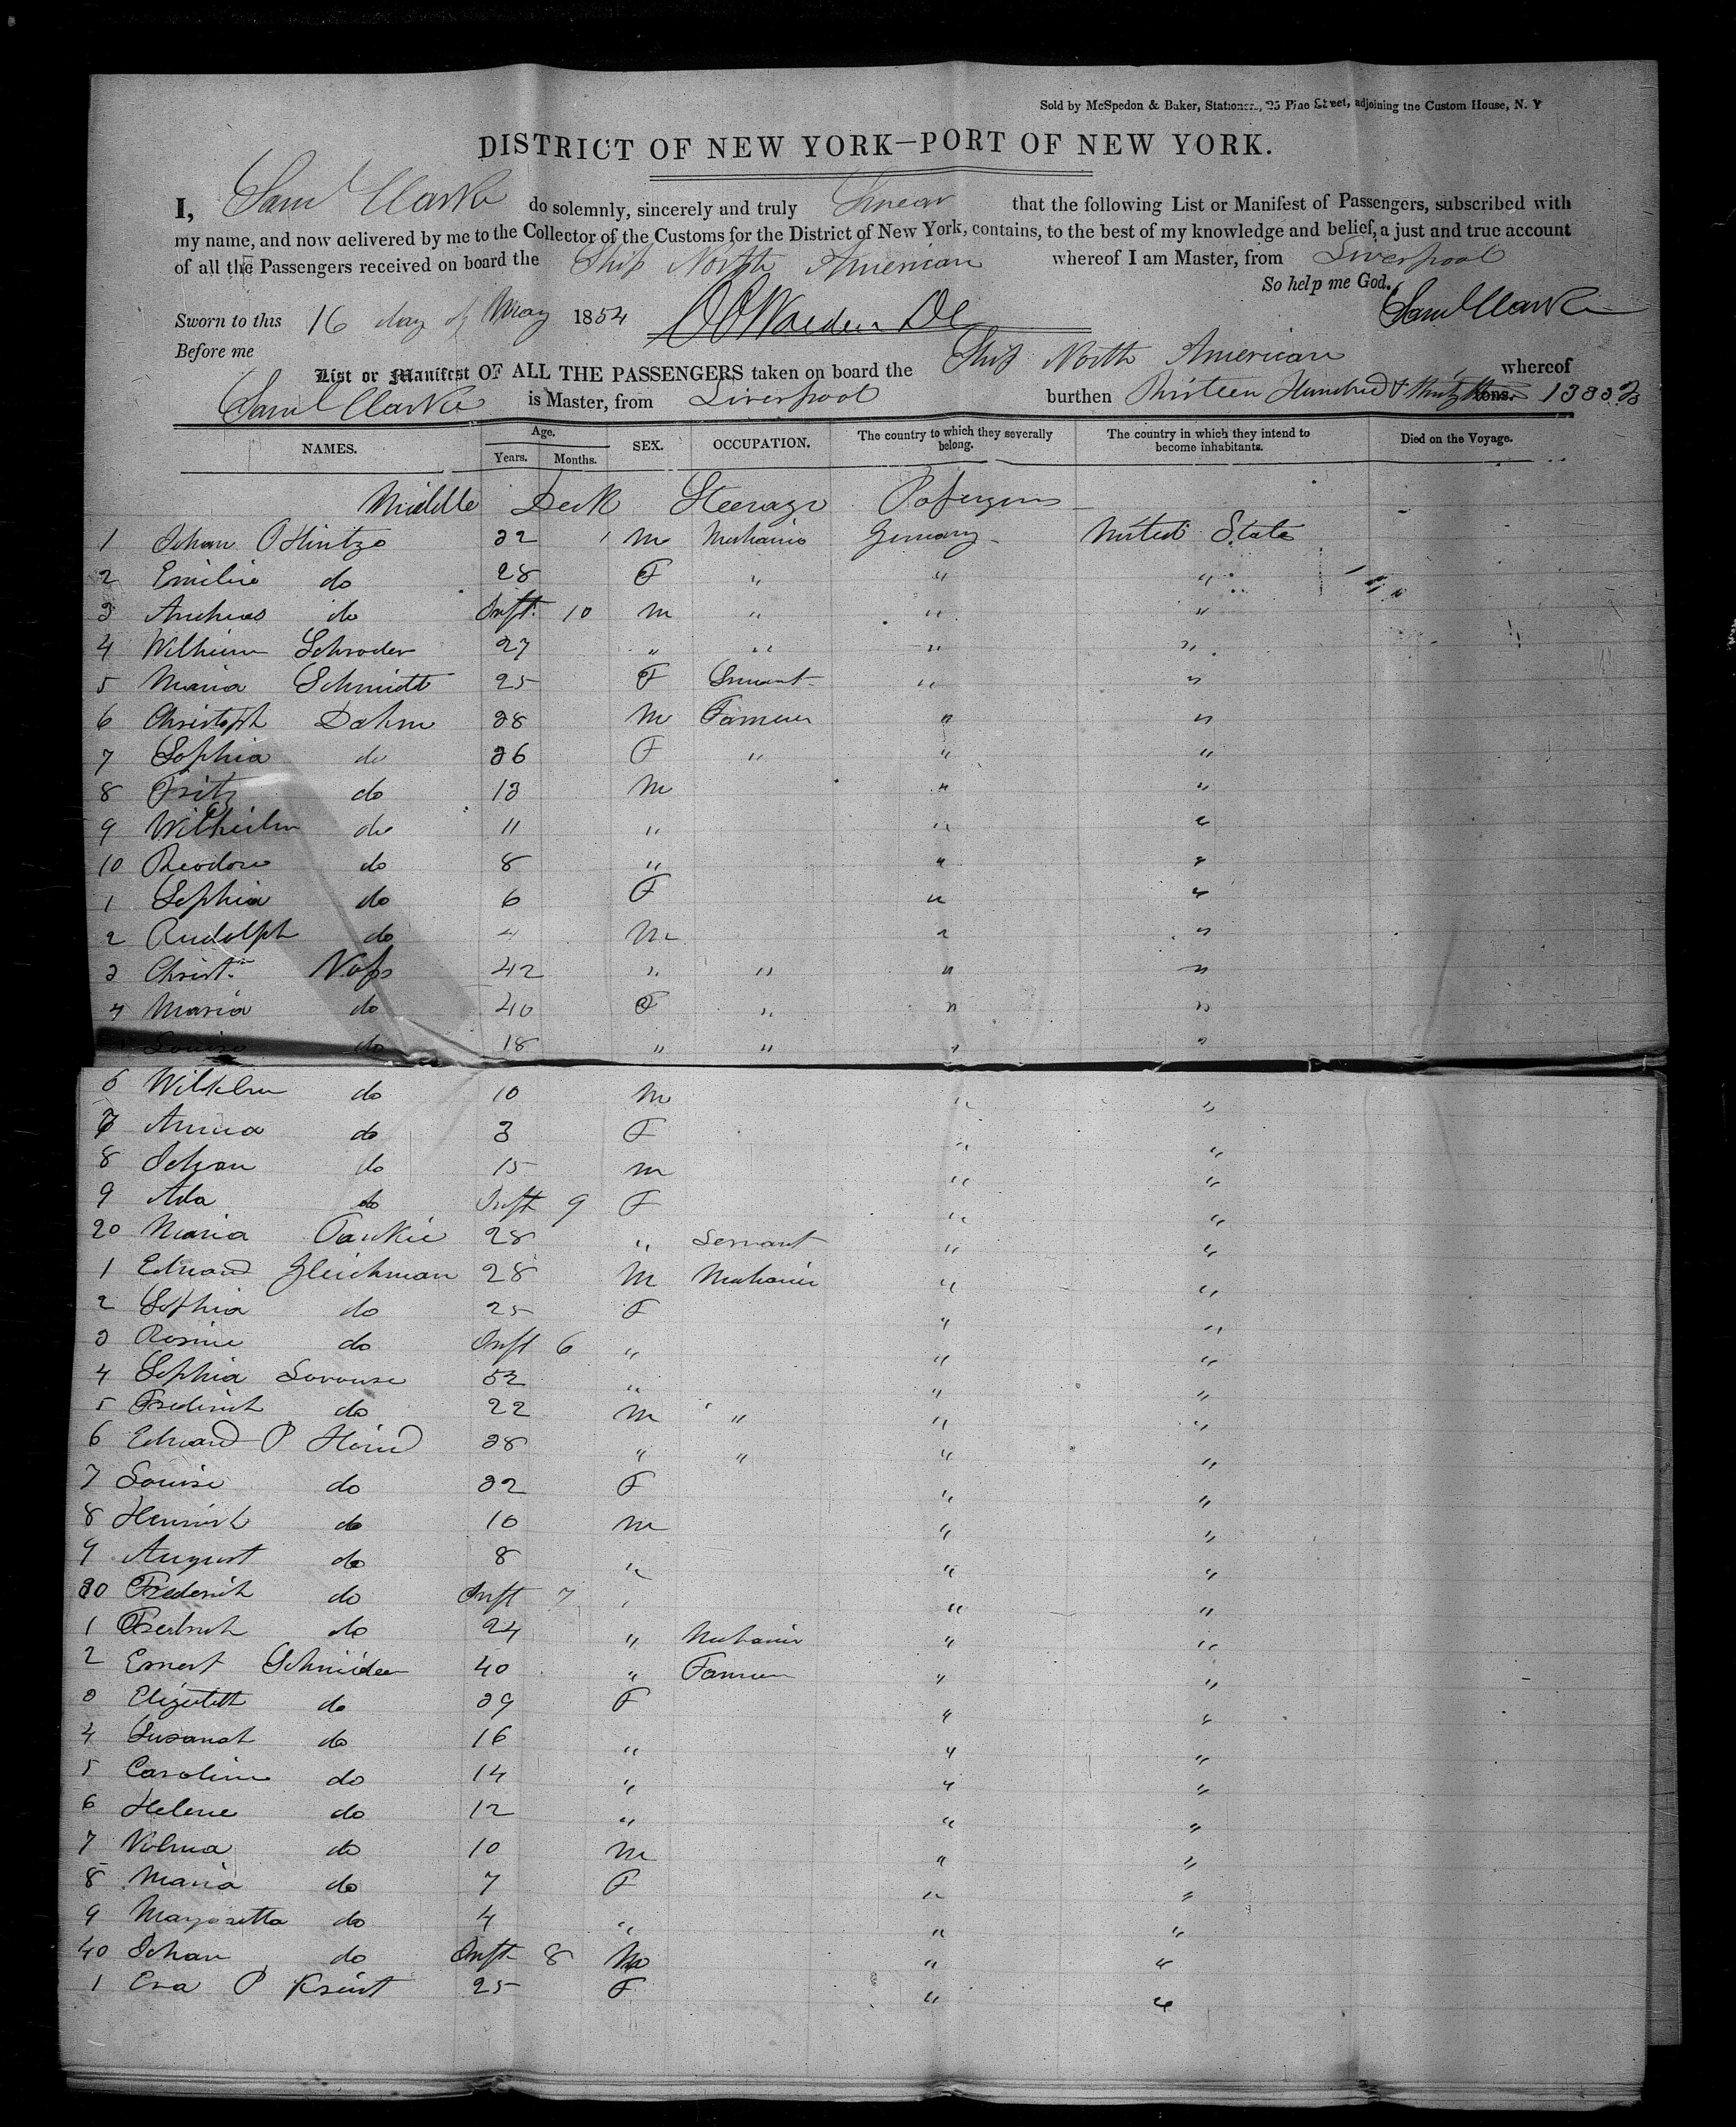 Sold by McSpedon & Baker, Stationers, 25 Pine Street, adjoining the Custom House, N. Y
DISTRICT OF NEW YORK—PORT OF NEW YORK.
I, Saml Clarke do solemnly, sincerely and truly Swear that the following List or Manifest of Passengers, subscribed with
my name, and now delivered by me to the Collector of the Customs for the District of New York, contains, to the best of my knowledge and belief, a just and true account
of all the Passengers received on board the Ship North American whereof I am Master, from Liverpool
So help me God.
Sworn to this 16 day of May 1854 Saml Clarke
Before me
List or Manifest OF ALL THE PASSENGERS taken on board the Ship North American whereof
Saml Clarke is Master, from Liverpool burthen Thirteen Hundred & tons.
NAMES. Age. Years. Months. SEX. OCCUPATION. The country to which they severally belong. The country in which they intend to become inhabitants. Died on the Voyage.
Middle Deck Steerage Passengers
1 Johan Hintze 32 m Mechanic Germany United States
2 Emilie do 28 F " " "
3 Andreas do Inft. 10 m " " "
4 Wilhelm Schroder 27 " " " "
5 Maria Schmidt 25 F Servant " "
6 Christoph Dahm 38 m Farmer " "
7 Sophia do 36 F " " "
8 Fritz do 13 m " "
9 Wilheilm do 11 " " "
10 Theodore do 8 " " "
1 Sophia do 6 F " "
2 Rudolph do 4 m " "
3 Christ. Nofs 42 " " " "
4 Maria do 40 F " " "
Louise do 18 " " " "
6 Wilhelm do 10 m " "
7 Anna do 3 F " "
8 Johan do 15 m " "
9 Ada do Inft 9 F " "
20 Maria Tankie 28 " Servant " "
1 Edward Gleichman 28 M Mechanic " "
2 Sophia do 25 F " "
3 Rosine do Inft 6 " " "
4 Sophia 52 " " "
5 Frederich do 22 m " " "
6 Edward P 38 " " " "
7 Louise do 32 F " "
8 Heinrich do 10 m " "
9 August do 8 " " "
30 Frederich do Inft 7 " " "
1 Fredrich do 24 " Mechanic " "
2 Ernest Schnider 40 " Farmer " "
3 Elizabeth do 39 F " "
4 Susanah do 16 " " "
5 Caroline do 14 " " "
6 Helene do 12 " " "
7 do 10 m " "
8 Maria do 7 F " "
9 Margaretta do 4 " " "
40 Johan do Inft 8 m " "
1 Eva P 25 F " "